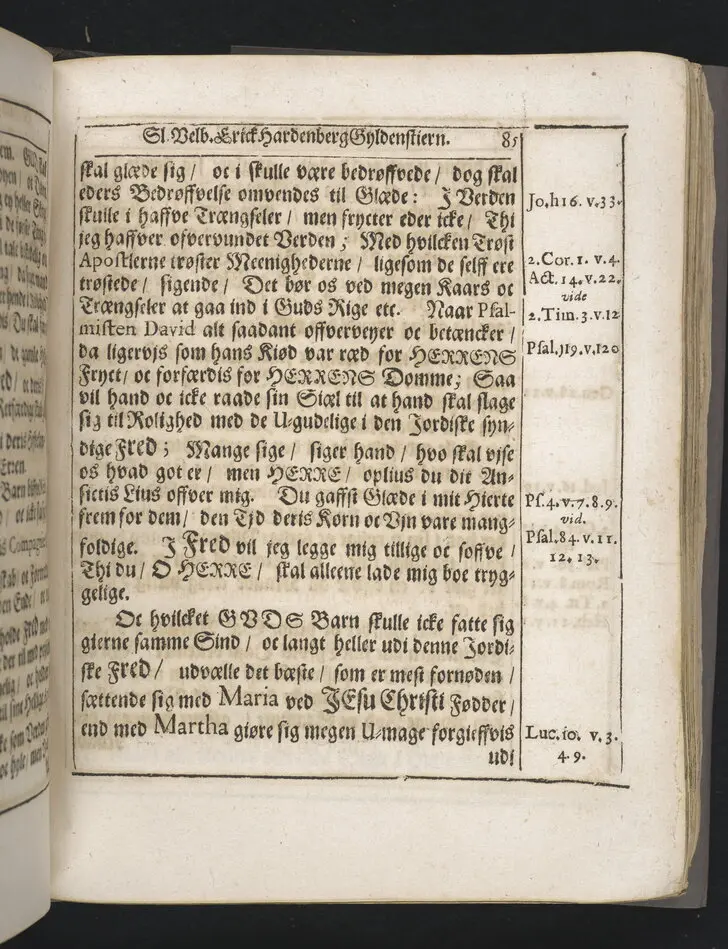 Sl. Velb. Erick Hardenberg Gyldenstiern. 85
skal glæde sig / oc i skulle være bedrøffvede / dog skal
eders Bedrøffvelse omvendes til Glæde: I Verden
skulle i haffve Trængseler / men frycter eder icke / Thi
jeg haffver ofvervundet Verden; Med hvilcken Trøst
Apostlerne trøster Meenighederne / ligesom de selff ere
trøstede / sigende / Det bør os ved megen Kaars oc
Trængseler at gaa ind i Guds Rige etc. Naar Psal-
misten David alt saadant offverveyer oc betæncker /
da ligervjs som hans Kiød var ræd for HERRENS
Fryct / oc forfærdis for HERRENS Domme; Saa
vil hand oc icke raade sin Siæl til at hand skal slage
sig til Rolighed med de U-gudelige i den Jordiske syn-
dige Fred; Mange sige / siger hand / hvo skal vjse
os hvad got er / men HERRE / oplius du dit An-
sictis Lius offver mig. Du gaffst Glæde i mit Hierte
frem for dem / den Tjd deris Korn oc Vjn vare mang-
foldige. I Fred vil jeg legge mig tillige oc soffve /
Thi du / O HERRE / skal alleene lade mig boe tryg-
gelige.
Oc hvilcket GUDS Barn skulle icke fatte sig
gierne samme Sind / oc langt heller udi denne Jordi-
ske Fred / udvælle det bæste / som er mest fornøden /
sættende sig med Maria ved JEsu Christi Fødder /
end med Martha giøre sig megen U-mage forgieffvis
udi
Jo,h16. v.33.
2.Cor.1. v.4.
Act.14.v.22.
vide
2.Tim.3.v.12
Psal.119.v.120
Ps.4.v.7.8.9.
vid.
Psal.84.v.11.
12.13.
Luc.10. v.3.
4.9.